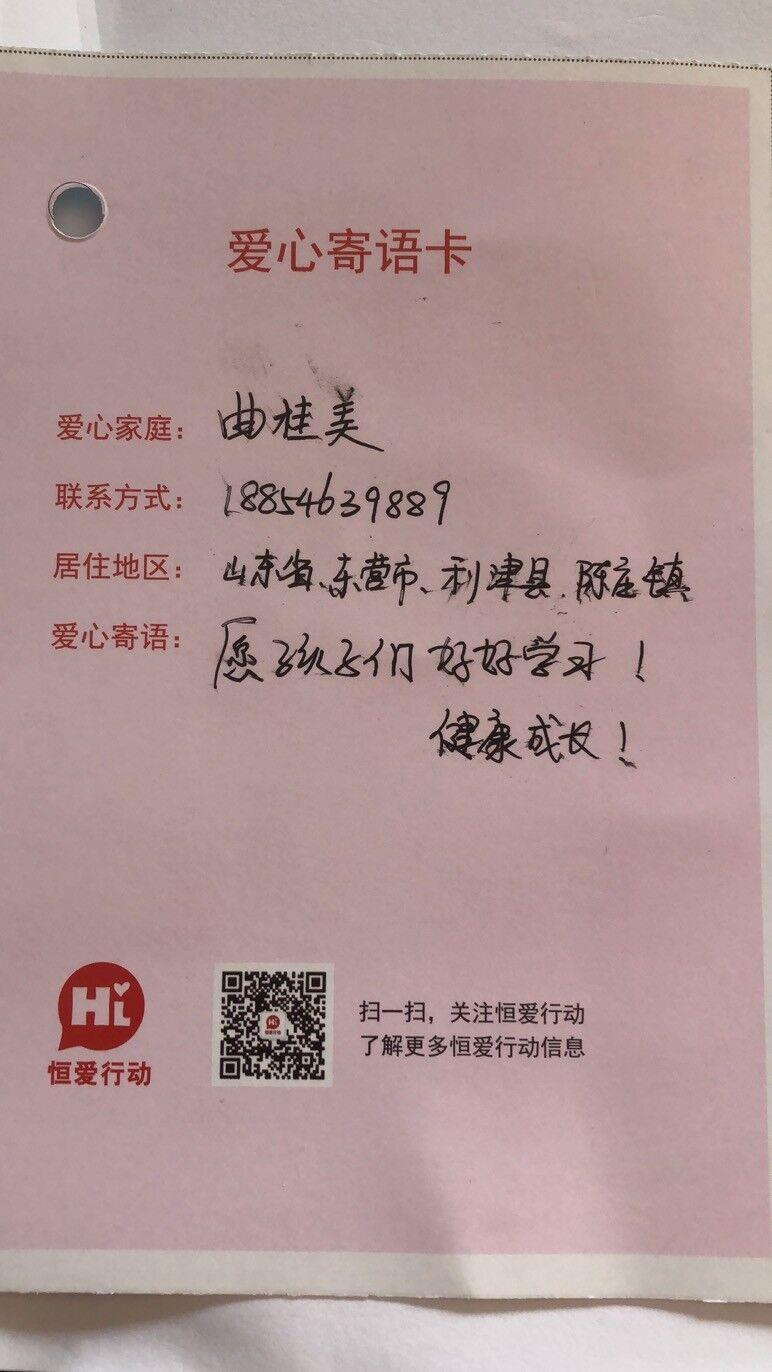 爱心寄语卡
爱心家庭：曲桂美
联系方式：18854639889
居住地区：山东省、东营市、利津县、陈庄镇
爱心寄语：愿孩子们好好学习！
健康成长！
Hi
恒爱行动
扫一扫，关注恒爱行动
了解更多恒爱行动信息